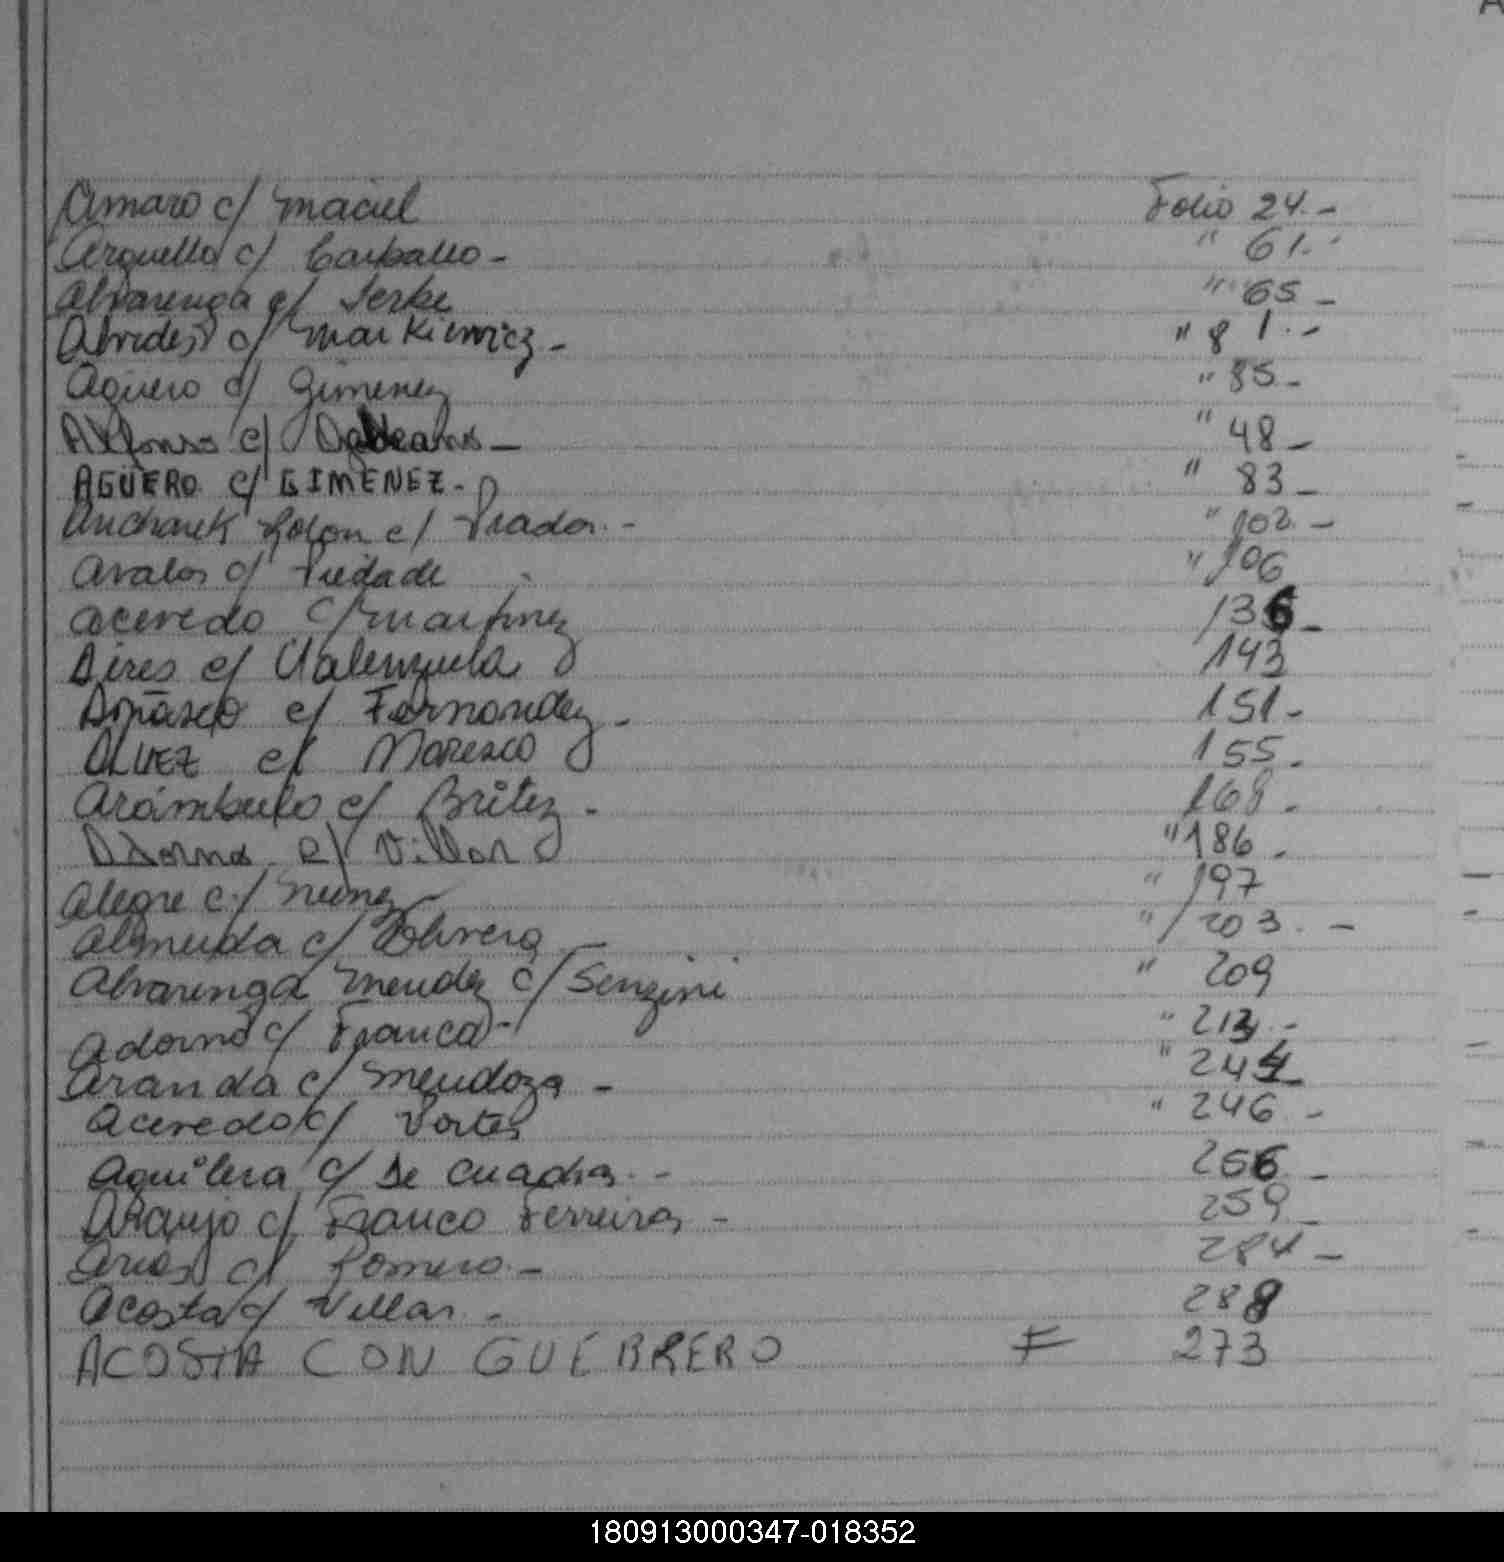 Amaro c/ Maciel Folio 24.-
Arguello c/ Carballo - " 61.-
Alvarenga c/ Serke " 65 -
Alvides c/ Markiewicz - " 81.-
Agüero c/ Gimenez " 85.-
Alfonso c/ Galeano - " 48 -
AGÜERO c/ GIMENEZ - " 83 -
Ancharek Rolon c/ Prador.- " 102.-
Avalos c/ Piedade " 106
Acevedo c/ Martinez 136 -
Aires c/ Valenzuela 143
c/ Fernandez - 151 -
ALVEZ c/ Moresco 155 -
Arámbulo c/ Britez - 168 -
Adorno c/ Villar " 186 -
Alegre c/ Nuñez " 197
Almeida c/ Olivera - " 203. -
Alvarenga Mendez c/ Senzini " 209
Adorno c/ Franca - " 213.-
Aranda c/ Mendoza - " 244
Acevedo c/ Portes " 246 -
Aguilera c/ De Cuadra - 256 -
Araujo c/ Franco Ferreira - 259 -
Arias c/ Romero - 284 -
Acosta c/ Villar - 288
ACOSTA CON GUERRERO F 273
180913000347-018352